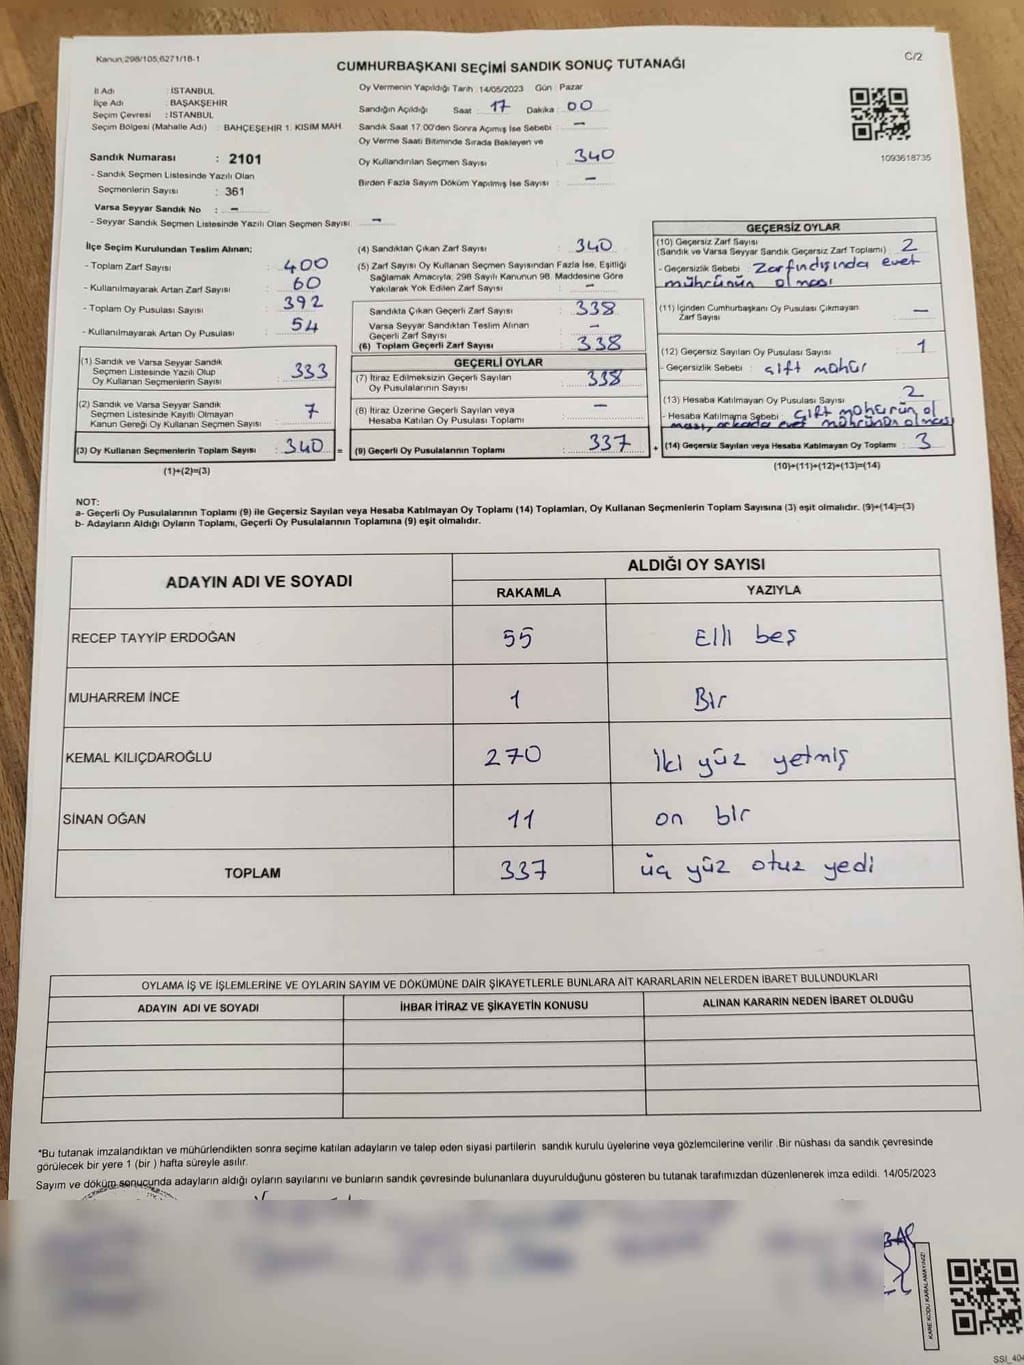 Kanun,298/105,6271/18-1
C/2
CUMHURBAŞKANI SEÇİMİ SANDIK SONUÇ TUTANAĞI
İl Adı : İSTANBUL
İlçe Adı : BAŞAKŞEHİR
Seçim Çevresi : İSTANBUL
Seçim Bölgesi (Mahalle Adı) : BAHÇEŞEHİR 1. KISIM MAH.
Oy Vermenin Yapıldığı Tarih : 14/05/2023 Gün : Pazar
Sandığın Açıldığı Saat : 17 Dakika : 00
Sandık Saat 17.00'den Sonra Açılmış İse Sebebi : -
Oy Verme Saati Bitiminde Sırada Bekleyen ve
Oy Kullandırılan Seçmen Sayısı : 340
Birden Fazla Sayım Döküm Yapılmış İse Sayısı : -
1093618735
Sandık Numarası : 2101
- Sandık Seçmen Listesinde Yazılı Olan
Seçmenlerin Sayısı : 361
Varsa Seyyar Sandık No : -
- Seyyar Sandık Seçmen Listesinde Yazılı Olan Seçmen Sayısı : -
İlçe Seçim Kurulundan Teslim Alınan;
- Toplam Zarf Sayısı : 400
- Kullanılmayarak Artan Zarf Sayısı : 60
- Toplam Oy Pusulası Sayısı : 392
- Kullanılmayarak Artan Oy Pusulası : 54
(1) Sandık ve Varsa Seyyar Sandık
Seçmen Listesinde Yazılı Olup
Oy Kullanan Seçmenlerin Sayısı : 333
(2) Sandık ve Varsa Seyyar Sandık
Seçmen Listesinde Kayıtlı Olmayan
Kanun Gereği Oy Kullanan Seçmen Sayısı : 7
(3) Oy Kullanan Seçmenlerin Toplam Sayısı : 340 =
(1)+(2)=(3)
(4) Sandıktan Çıkan Zarf Sayısı : 340
(5) Zarf Sayısı Oy Kullanan Seçmen Sayısından Fazla İse, Eşitliği
Sağlamak Amacıyla, 298 Sayılı Kanunun 98. Maddesine Göre
Yakılarak Yok Edilen Zarf Sayısı : -
Sandıkta Çıkan Geçerli Zarf Sayısı : 338
Varsa Seyyar Sandıktan Teslim Alınan
Geçerli Zarf Sayısı : -
(6) Toplam Geçerli Zarf Sayısı : 338
GEÇERLİ OYLAR
(7) İtiraz Edilmeksizin Geçerli Sayılan
Oy Pusulalarının Sayısı : 338
(8) İtiraz Üzerine Geçerli Sayılan veya
Hesaba Katılan Oy Pusulası Toplamı : -
(9) Geçerli Oy Pusulalarının Toplamı : 337 +
GEÇERSİZ OYLAR
(10) Geçersiz Zarf Sayısı
(Sandık ve Varsa Seyyar Sandık Geçersiz Zarf Toplamı) : 2
- Geçersizlik Sebebi : Zarfındışında evet
mührünün olması
(11) İçinden Cumhurbaşkanı Oy Pusulası Çıkmayan
Zarf Sayısı : -
(12) Geçersiz Sayılan Oy Pusulası Sayısı : 1
- Geçersizlik Sebebi : Çift mühür
(13) Hesaba Katılmayan Oy Pusulası Sayısı : 2
- Hesaba Katılmama Sebebi : Çift mührün ol
ması, arkada evet mührünün olması
(14) Geçersiz Sayılan veya Hesaba Katılmayan Oy Toplamı : 3
(10)+(11)+(12)+(13)=(14)
NOT:
a- Geçerli Oy Pusulalarının Toplamı (9) ile Geçersiz Sayılan veya Hesaba Katılmayan Oy Toplamı (14) Toplamları, Oy Kullanan Seçmenlerin Toplam Sayısına (3) eşit olmalıdır. (9)+(14)=(3)
b- Adayların Aldığı Oyların Toplamı, Geçerli Oy Pusulalarının Toplamına (9) eşit olmalıdır.
ADAYIN ADI VE SOYADI
ALDIĞI OY SAYISI
RAKAMLA YAZIYLA
RECEP TAYYİP ERDOĞAN 55 Elli beş
MUHARREM İNCE 1 Bir
KEMAL KILIÇDAROĞLU 270 iki yüz yetmiş
SİNAN OĞAN 11 on bir
TOPLAM 337 üç yüz otuz yedi
OYLAMA İŞ VE İŞLEMLERİNE VE OYLARIN SAYIM VE DÖKÜMÜNE DAİR ŞİKAYETLERLE BUNLARA AİT KARARLARIN NELERDEN İBARET BULUNDUKLARI
ADAYIN ADI VE SOYADI İHBAR İTİRAZ VE ŞİKAYETİN KONUSU ALINAN KARARIN NEDEN İBARET OLDUĞU
*Bu tutanak imzalandıktan ve mühürlendikten sonra seçime katılan adayların ve talep eden siyasi partilerin sandık kurulu üyelerine veya gözlemcilerine verilir .Bir nüshası da sandık çevresinde
görülecek bir yere 1 (bir ) hafta süreyle asılır.
Sayım ve döküm sonucunda adayların aldığı oyların sayılarını ve bunların sandık çevresinde bulunanlara duyurulduğunu gösteren bu tutanak tarafımızdan düzenlenerek imza edildi. 14/05/2023
KARE KODU KARALAMAYINIZ!